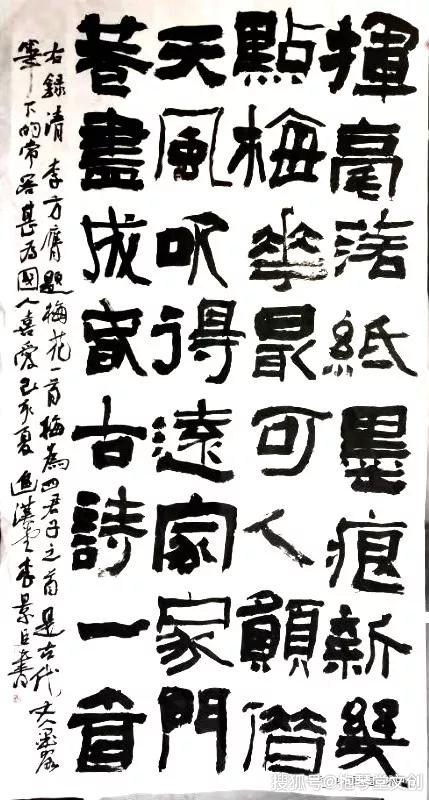 揮毫落紙墨痕新幾
點梅華最可人願借
天風吹得遠家家門
巷盡成春古詩一首
右録清李方膺題梅花一首梅為四君子之首是古代文人墨客
筆下的常客甚为國人喜愛己亥夏李景臣書
搜狐号@抱琴堂文创